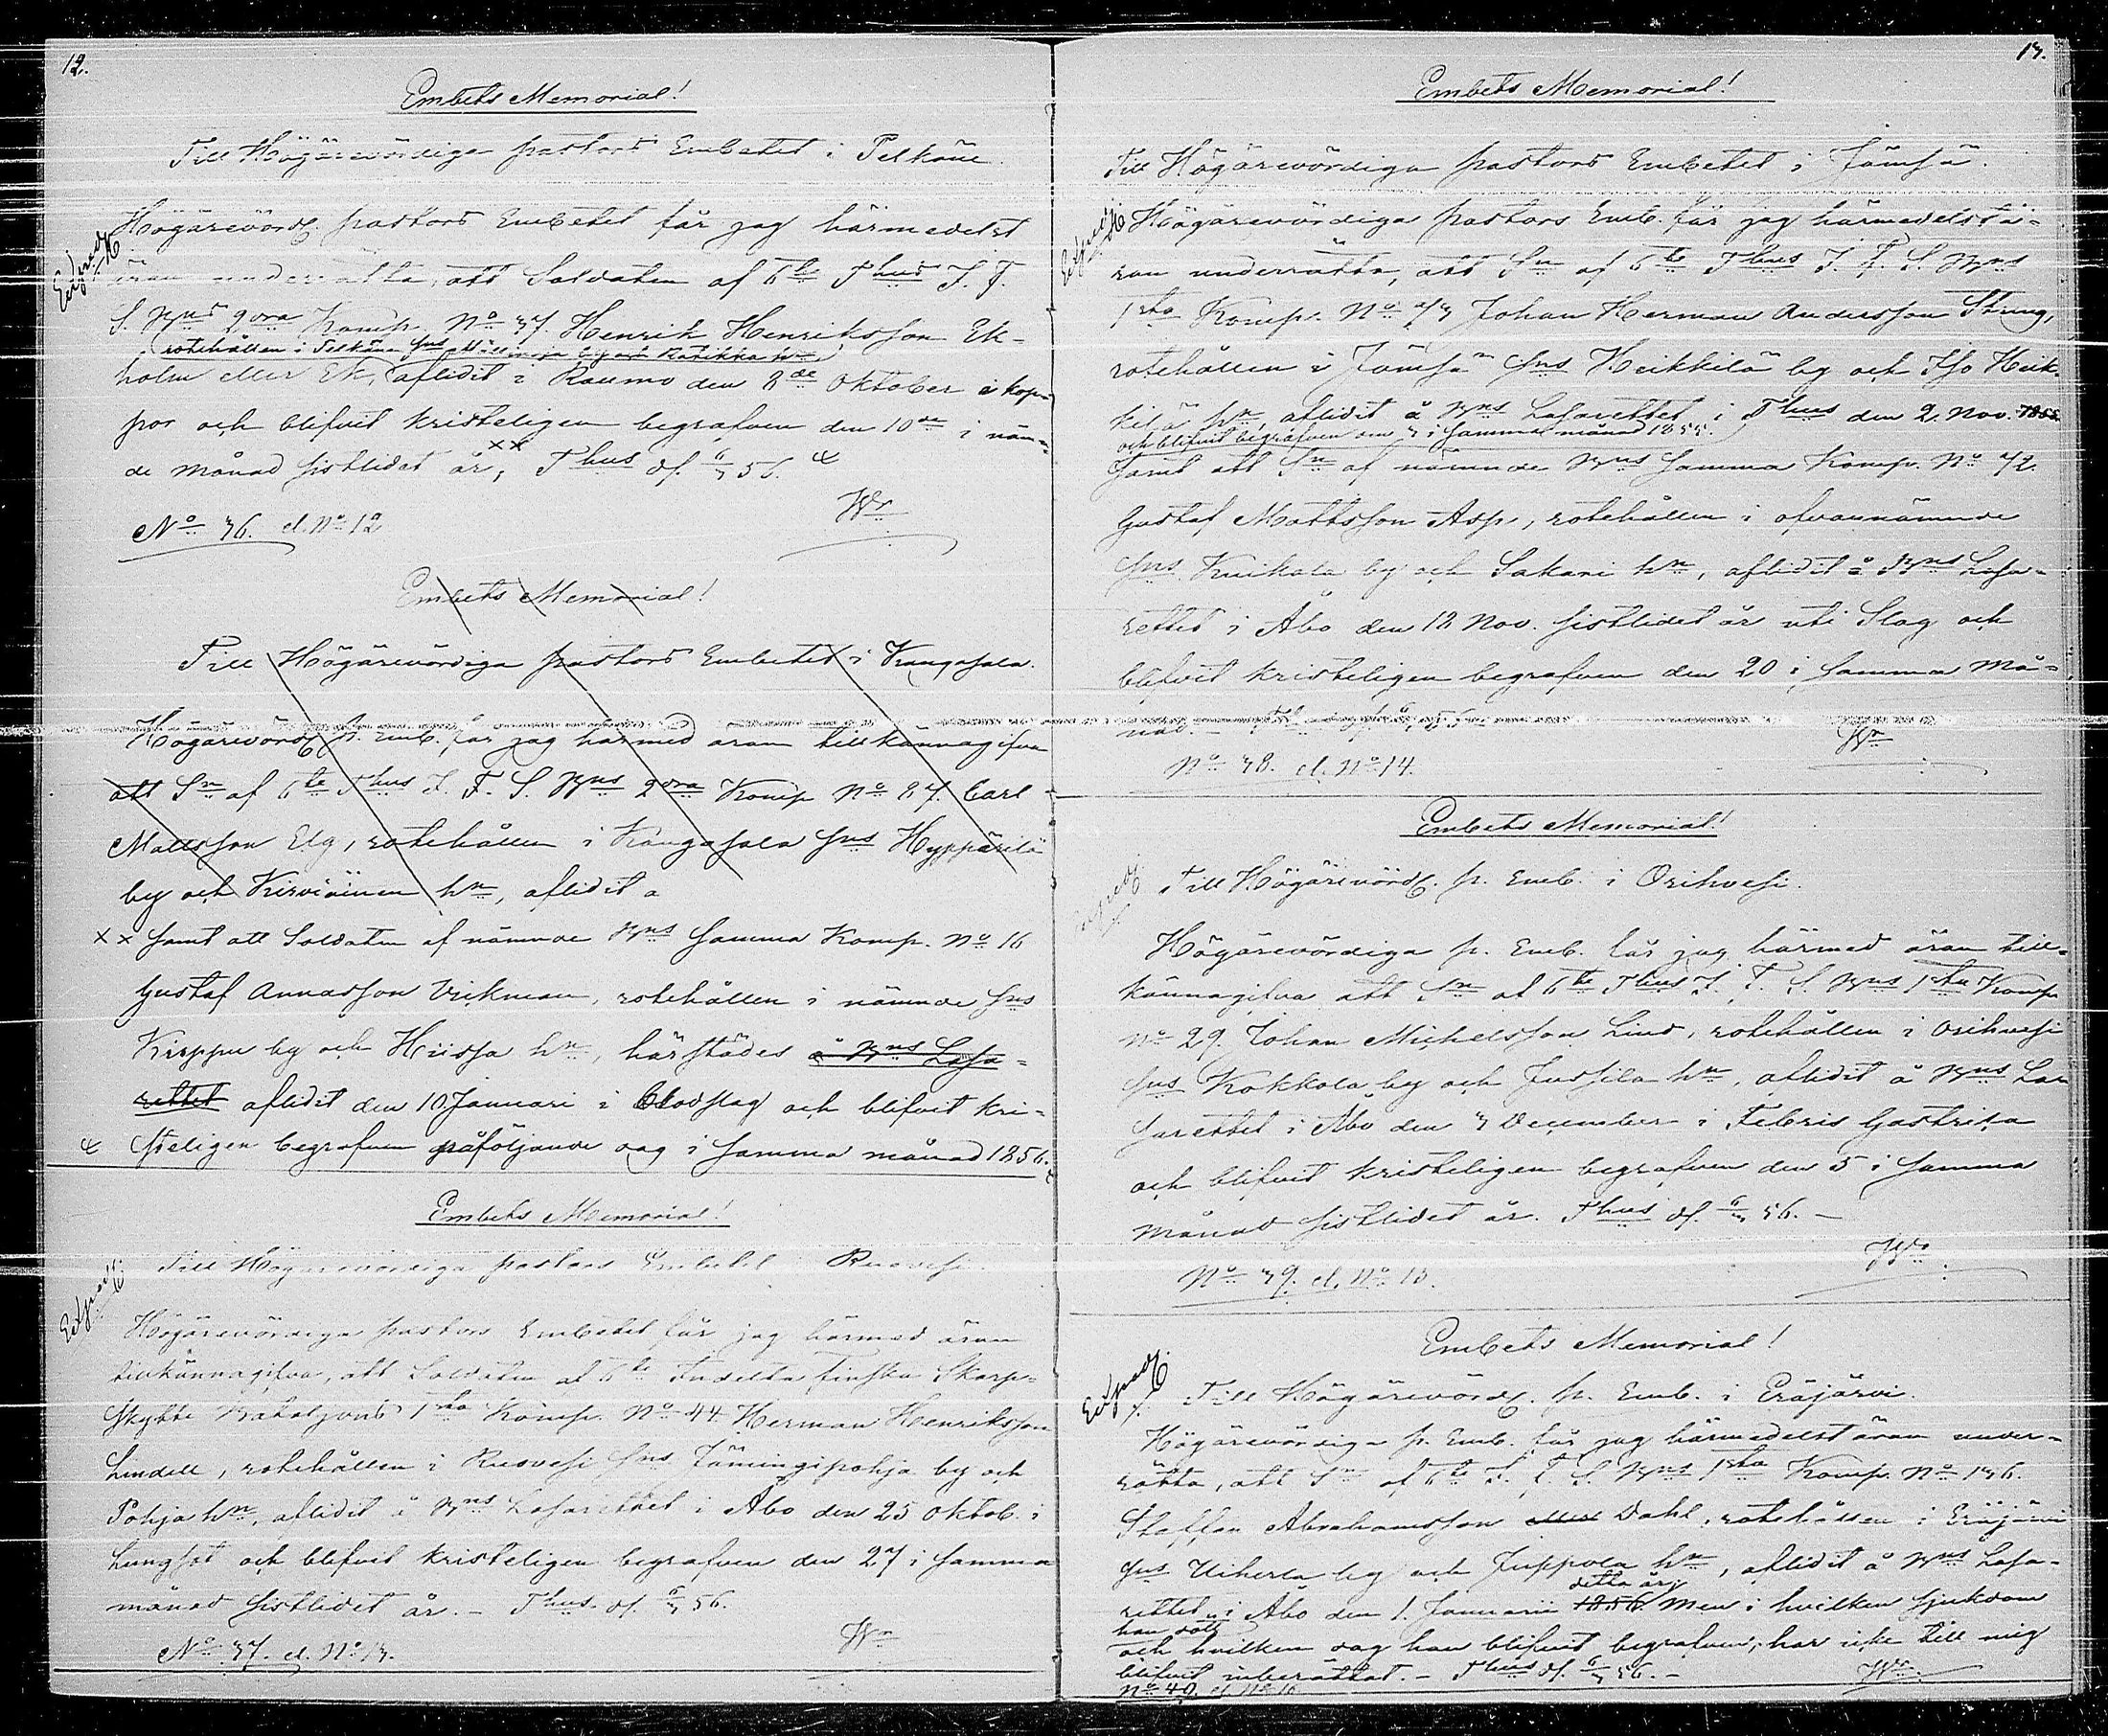 12.
Embets Memorial!
Till Högärevördiga pastors Embetet i Pelkäne.
Expeed
Högärevörd. pastors Embetet får jag härmedelst
äran underrätta, att Soldaten af 6te Thus I. F.
S. Bns 2dra Komp. No 37. Henrik Henriksson Ek-
rotehållen i Pelkäne Sns
holm eller Ek, aflidit i Raumo den 8de Oktober i kop-
por och blifvit kristeligen begrafven den 10de i näm-
de månad sistlidet år, xx Thus d. 6/3 56.
Wn
No 36. el. No 12
Embets Memorial!
Till Högärevördiga pastors Embetet i Kangasala.
Högärevörd. p. Emb. får jag härmed äran tillkännagifva
att Sn af 6te Thus I. F. S. Bns 2dra Komp No 87. Carl
Mattsson Elg, rotehållen i Kangasala Sns Hyppärilä
by och Kirviäinen hn, aflidit a
xx samt att Soldaten af nämnde Bns samma Komp. No 16
Gustaf Annasson Vickman, rotehållen i nämnde Sns
Kirppu by och Hiissa hn, härstädes å Bns Lasa-
rettet aflidit den 10. Januari i blodslag och blifvit kri-
steligen begrafven påföljande dag i samma månad 1856.
Embets Memorial!
Till Högärevördiga pastors Embetet i Ruovesi.
Expeed
Högärevördiga pastors Embetet får jag härmed äran
tillkännagifva, att Soldaten af 6te Indelta finska Skarp-
skytte Bataljons 1sta Komp. No 44 Herman Henriksson
Lindell, rotehållen i Ruovesi Sns Jämingipohja by och
Pohja hn, aflidit å Bns Lasarettet i Åbo den 25 Oktob. i
Lungsot och blifvit kristeligen begrafven den 27 i samma
månad sistlidet år. - Thus d. 6/3 56.
Wn
No 37. el. No 13.
13.
Embets Memorial!
Till Högärevördiga pastors Embetet i Jämsä.
Expeed
Högärevördiga pastors Emb. får jag härmedelst ä-
ran underrätta, att Sn af 6te Thus I. F. S. Bns
1sta Komp. No 73 Johan Herman Andersson String,
rotehållen i Jämsä Sns Heikkilä by och Iso Heik-
kilä hn, aflidit å Bns Lasarettet i Thus den 2. Nov. 1855
och blifvit begrafven den 3 i samma månad 1855.
Samt att Sn af nämnde Bns samma Komp. No 72.
Gustaf Mattsson Asp, rotehållen i ofvannämnde
Sns Kuikala by och Sakari hn, aflidit å Bns Lasa-
rettet i Åbo den 18 Nov. sistlidet år uti Slag och
blifvit kristeligen begrafven den 20 i samma må-
nad. -
Wn
No 38. el. No 14.
Embets Memorial!
Expeed
Till Högärevörd. p. Emb. i Orihvesi.
Högärevördiga p. Emb. får jag härmed äran till-
kännagifva att Sn af 6te Thus I. F. S. Bns 1sta Komp
No 29. Johan Michelsson Lind, rotehållen i Orihvesi
Sns Kokkola by och Jussila hn, aflidit å Bns La-
sarettet i Åbo den 3 December i Febris Gastrica
och blifvit kristeligen begrafven den 5 i samma
månad sistlidet år. Thus d. 6/3 56. -
Wn.
No 39. el. No 15.
Embets Memorial!
Expeed
Till Högärevörd. p. Emb. i Eräjärvi.
Högärevördiga p. Emb. får jag härmedelst äran under-
rätta, att Sn af 6te I. F. S. Bns 1sta Komp. No 136.
Staffan Abrahamsson eller Dahl, rotehållen i Eräjärvi
Sns Uiherla by och Juppola hn, aflidit å Bns Lasa-
detta år,
rettet i Åbo den 1. Januarii 1856. men i hvilken sjukdom
han dött
och hvilken dag han blifvit begrafven, har icke till mig
blifvit inberättat. - Thus d. 6/3 56. -
Wn.
No 40. el. No 16